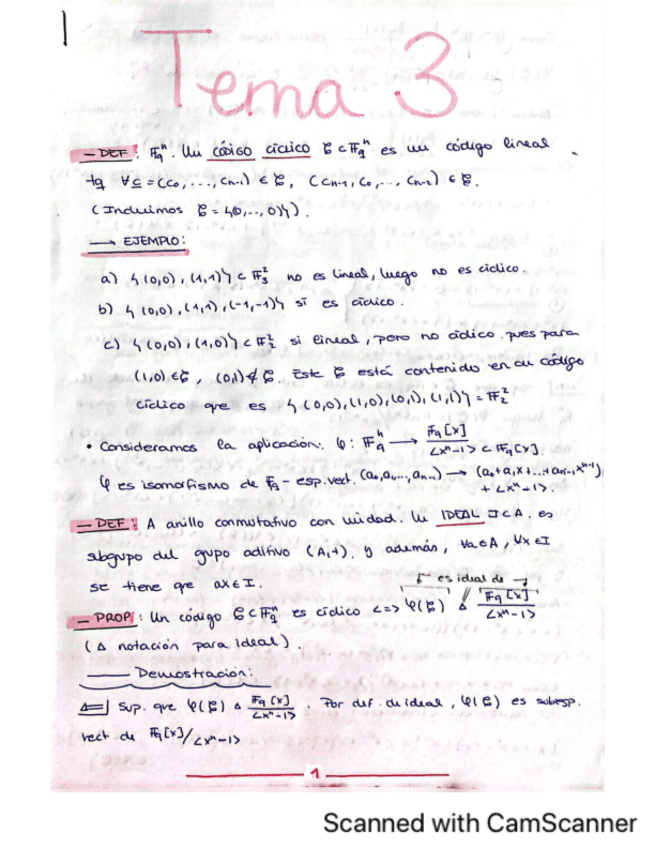 Tema 3
- DEF: 𝔽q^n. Un código cíclico 𝒞 ⊂ 𝔽q^n es un código lineal
tq ∀c = (c0, ..., cn-1) ∈ 𝒞, (cn-1, c0, ..., cn-2) ∈ 𝒞.
(Incluimos 𝒞 = {(0, ..., 0)}).
→ EJEMPLO:
a) {(0,0), (1,1)} ⊂ 𝔽3^2 no es lineal, luego no es cíclico.
b) {(0,0), (1,1), (-1,-1)} sí es cíclico.
c) {(0,0), (1,0)} ⊂ 𝔽2^2 si lineal, pero no cíclico pues para
(1,0) ∈ 𝒞, (0,1) ∉ 𝒞. Este 𝒞 está contenido en un código
cíclico que es {(0,0), (1,0), (0,1), (1,1)} = 𝔽2^2
• Consideramos la aplicación. φ: 𝔽q^n → 𝔽q[x]/<x^n-1> ⊂ 𝔽q[x].
φ es isomorfismo de 𝔽q - esp. vect. (a0, a1, ..., an-1) → (a0 + a1x + ... + an-1x^n-1)
+ <x^n-1>.
- DEF: A anillo conmutativo con unidad. Un IDEAL I ⊂ A, es
subgrupo del grupo aditivo (A,+). y además, ∀a ∈ A, ∀x ∈ I
se tiene que ax ∈ I.
es ideal de
- PROP: Un código 𝒞 ⊂ 𝔽q^n es cíclico <=> φ(𝒞) Δ 𝔽q[x]/<x^n-1>
(Δ notación para Ideal).
Demostración:
<=| Sup. que φ(𝒞) Δ 𝔽q[x]/<x^n-1>. Por def. de ideal, φ(𝒞) es subesp.
vect de 𝔽q[x]/<x^n-1>
1
Scanned with CamScanner